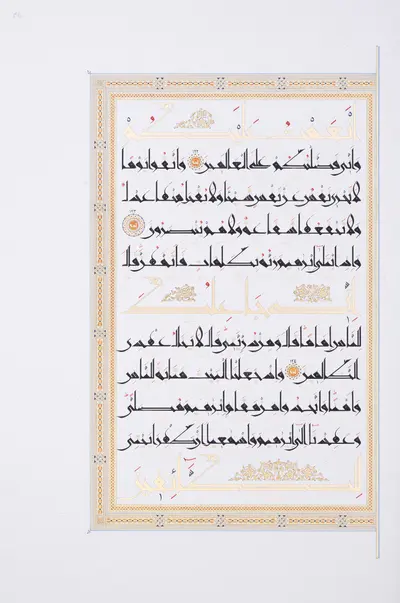 أنعمت عليكم
وأني فضلتكم على العالمين واتقوا يوما
لا تجزي نفس عن نفس شيئا ولا يقبل منها عدل
ولا تنفعها شفاعة ولا هم ينصرون
وإذ ابتلى إبراهيم ربه بكلمات فأتمهن قال
إني جاعلك
للناس إماما قال ومن ذريتي قال لا ينال عهدي
الظالمين وإذ جعلنا البيت مثابة للناس
وأمنا واتخذوا من مقام إبراهيم مصلى
وعهدنا إلى إبراهيم وإسماعيل أن طهرا بيتي
للطائفين